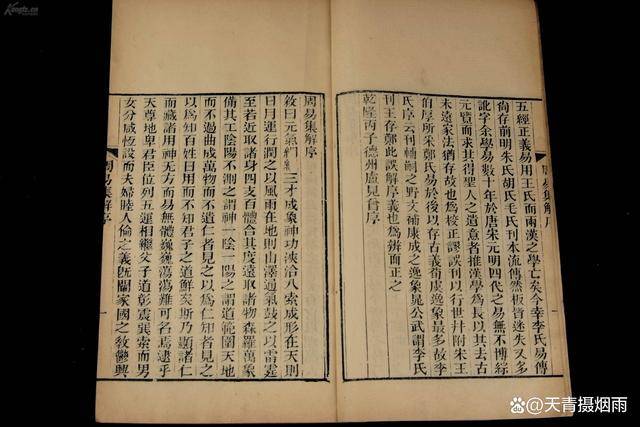 周易集解序
五經正義易用王氏而兩漢之學亡矣今幸李氏易傳
尚存前明朱氏胡氏毛氏刊本流傳然板皆迷失又多
訛字余學易數十年於唐宋元明四代之易無不博綜
元覽而求其得聖人之遺意者推漢學為長以其去古
未遠家法猶存故也為校正謬誤刊以行世幷附宋王
伯厚所采鄭氏易於後以存古義荀虞逸象最多故李
氏序云刊輔嗣之野文補康成之逸象晁公武謂李氏
刊王存鄭此誤解序義也為辨而正之
乾隆丙子德州盧見曾序
周易集解序
敘曰元氣絪縕三才成象神功浹洽八索成形在天則
日月運行潤之以風雨在地則山澤通氣鼓之以雷霆
至若近取諸身四支百體合其度遠取諸物森羅萬象
備其工陰陽不測之謂神一陰一陽之謂道範圍天地
而不過曲成萬物而不遺仁者見之以為仁知者見之
以為知百姓日用而不知君子之道鮮矣斯乃顯諸仁
而藏諸用神无方而易無體巍巍蕩蕩難可名焉逮乎
天尊地卑君臣位列五運相繼父子道彰震巽索而男
女分咸恆設而夫婦睦人倫之義旣闡家國之教鬱興
周易集解序
Kongfz.cn
头条 @天青摄烟雨